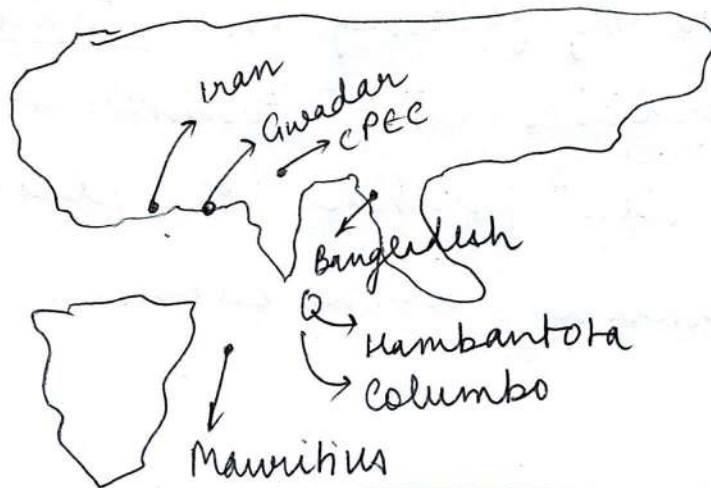 Iran
Gwadar
CPEC
Bangladesh
Hambantota
Columbo
Mauritius